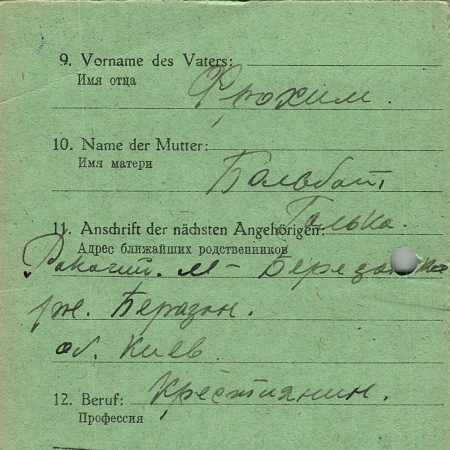 9. Vorname des Vaters:
Имя отца
Фрохим.
10. Name der Mutter:
Имя матери
Бальбат
Галька.
11. Anschrift der nächsten Angehörigen:
Адрес ближайших родственников
м-
об. Киев
12. Beruf: Крестиянин.
Профессия